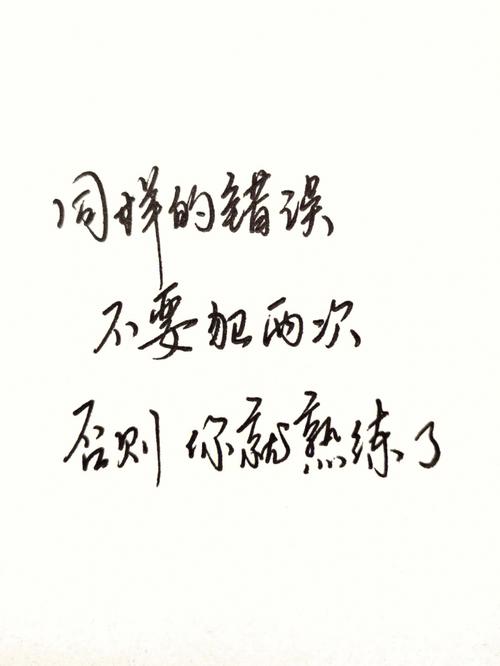 同样的错误
不要犯两次
否则你就熟练了